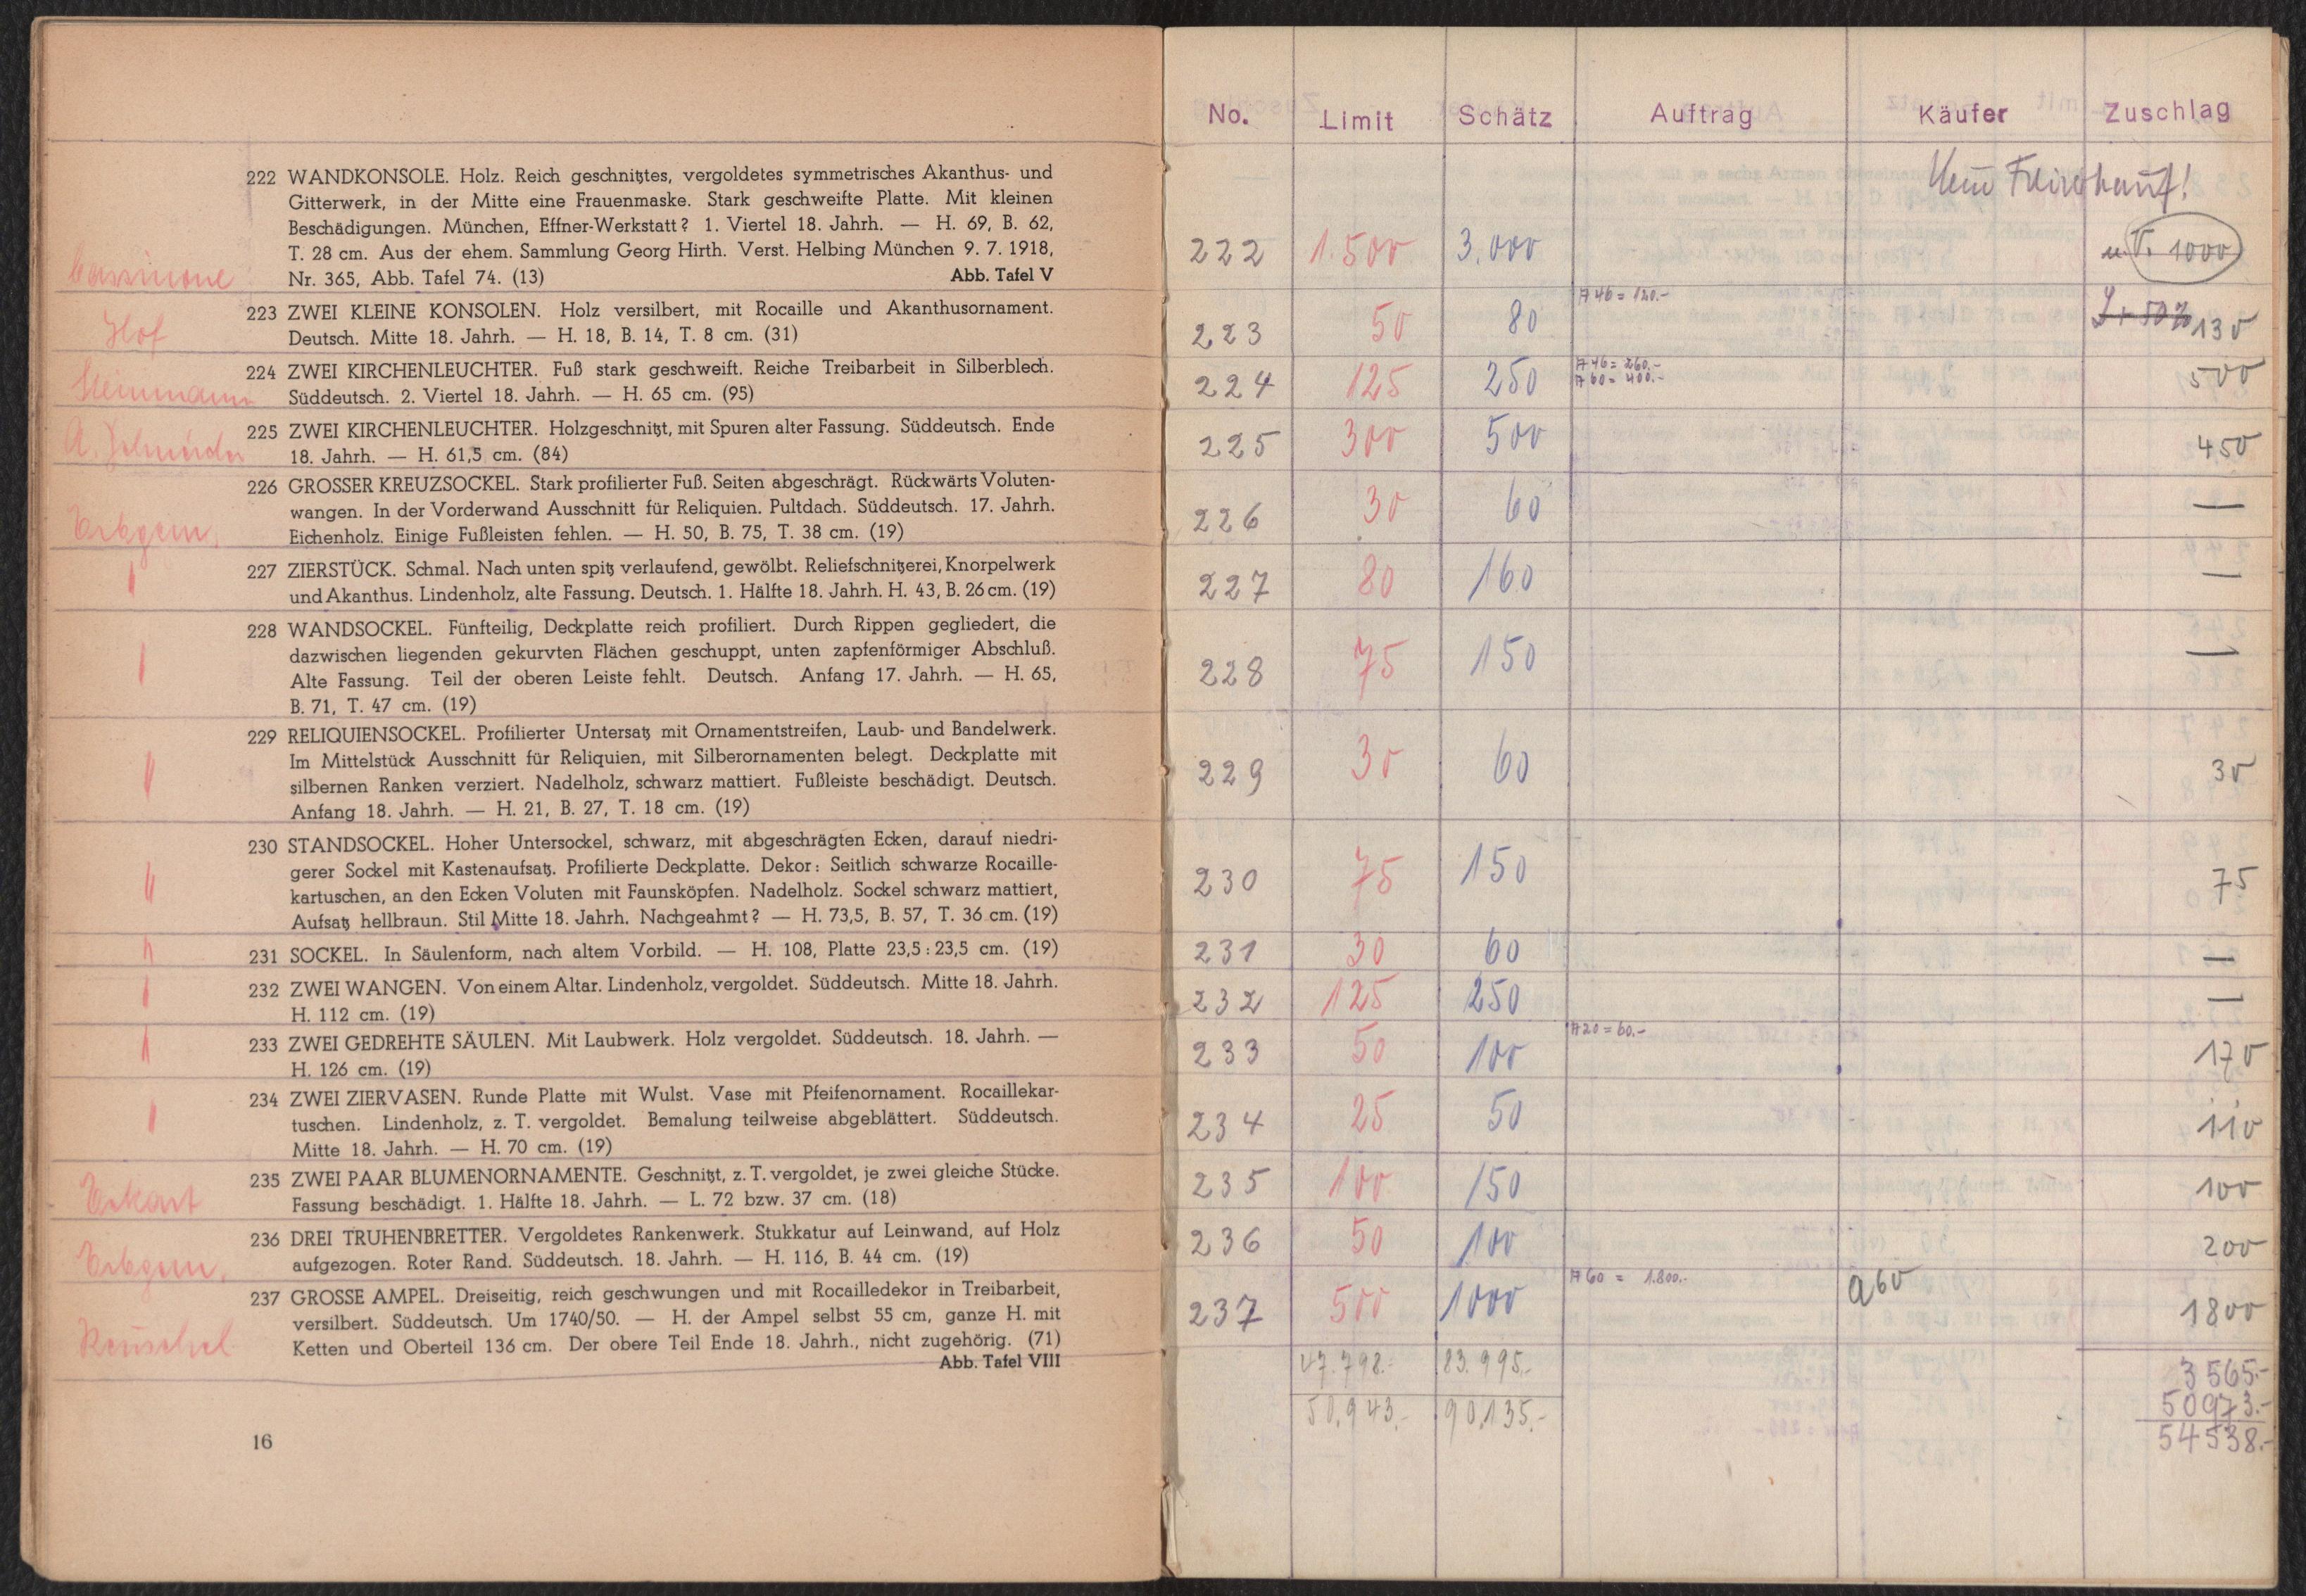 222 WANDKONSOLE. Holz. Reich geschnitztes, vergoldetes symmetrisches Akanthus- und
Gitterwerk, in der Mitte eine Frauenmaske. Stark geschweifte Platte. Mit kleinen
Beschädigungen. München, Effner-Werkstatt? 1. Viertel 18. Jahrh. — H. 69, B. 62,
T. 28 cm. Aus der ehem. Sammlung Georg Hirth. Verst. Helbing München 9. 7. 1918,
Cassirone Nr. 365, Abb. Tafel 74. (13) Abb. Tafel V
223 ZWEI KLEINE KONSOLEN. Holz versilbert, mit Rocaille und Akanthusornament.
Hof Deutsch. Mitte 18. Jahrh. — H. 18, B. 14, T. 8 cm. (31)
224 ZWEI KIRCHENLEUCHTER. Fuß stark geschweift. Reiche Treibarbeit in Silberblech.
Heinmann Süddeutsch. 2. Viertel 18. Jahrh. — H. 65 cm. (95)
225 ZWEI KIRCHENLEUCHTER. Holzgeschnitzt, mit Spuren alter Fassung. Süddeutsch. Ende
18. Jahrh. — H. 61,5 cm. (84)
226 GROSSER KREUZSOCKEL. Stark profilierter Fuß. Seiten abgeschrägt. Rückwärts Voluten-
wangen. In der Vorderwand Ausschnitt für Reliquien. Pultdach. Süddeutsch. 17. Jahrh.
Eichenholz. Einige Fußleisten fehlen. — H. 50, B. 75, T. 38 cm. (19)
227 ZIERSTÜCK. Schmal. Nach unten spitz verlaufend, gewölbt. Reliefschnitzerei, Knorpelwerk
und Akanthus. Lindenholz, alte Fassung. Deutsch. 1. Hälfte 18. Jahrh. H. 43, B. 26 cm. (19)
228 WANDSOCKEL. Fünfteilig, Deckplatte reich profiliert. Durch Rippen gegliedert, die
dazwischen liegenden gekurvten Flächen geschuppt, unten zapfenförmiger Abschluß.
Alte Fassung. Teil der oberen Leiste fehlt. Deutsch. Anfang 17. Jahrh. — H. 65,
B. 71, T. 47 cm. (19)
229 RELIQUIENSOCKEL. Profilierter Untersatz mit Ornamentstreifen, Laub- und Bandelwerk.
Im Mittelstück Ausschnitt für Reliquien, mit Silberornamenten belegt. Deckplatte mit
silbernen Ranken verziert. Nadelholz, schwarz mattiert. Fußleiste beschädigt. Deutsch.
Anfang 18. Jahrh. — H. 21, B. 27, T. 18 cm. (19)
230 STANDSOCKEL. Hoher Untersockel, schwarz, mit abgeschrägten Ecken, darauf niedri-
gerer Sockel mit Kastenaufsatz. Profilierte Deckplatte. Dekor: Seitlich schwarze Rocaille-
kartuschen, an den Ecken Voluten mit Faunsköpfen. Nadelholz. Sockel schwarz mattiert,
Aufsatz hellbraun. Stil Mitte 18. Jahrh. Nachgeahmt? — H. 73,5, B. 57, T. 36 cm. (19)
231 SOCKEL. In Säulenform, nach altem Vorbild. — H. 108, Platte 23,5 : 23,5 cm. (19)
232 ZWEI WANGEN. Von einem Altar. Lindenholz, vergoldet. Süddeutsch. Mitte 18. Jahrh.
H. 112 cm. (19)
233 ZWEI GEDREHTE SÄULEN. Mit Laubwerk. Holz vergoldet. Süddeutsch. 18. Jahrh. —
H. 126 cm. (19)
234 ZWEI ZIERVASEN. Runde Platte mit Wulst. Vase mit Pfeifenornament. Rocaillekar-
tuschen. Lindenholz, z. T. vergoldet. Bemalung teilweise abgeblättert. Süddeutsch.
Mitte 18. Jahrh. — H. 70 cm. (19)
235 ZWEI PAAR BLUMENORNAMENTE. Geschnitzt, z. T. vergoldet, je zwei gleiche Stücke.
Eckart Fassung beschädigt. 1. Hälfte 18. Jahrh. — L. 72 bzw. 37 cm. (18)
236 DREI TRUHENBRETTER. Vergoldetes Rankenwerk. Stukkatur auf Leinwand, auf Holz
aufgezogen. Roter Rand. Süddeutsch. 18. Jahrh. — H. 116, B. 44 cm. (19)
237 GROSSE AMPEL. Dreiseitig, reich geschwungen und mit Rocailledekor in Treibarbeit,
versilbert. Süddeutsch. Um 1740/50. — H. der Ampel selbst 55 cm, ganze H. mit
Reuschel Ketten und Oberteil 136 cm. Der obere Teil Ende 18. Jahrh., nicht zugehörig. (71)
Abb. Tafel VIII
16
No. Limit Schätz Auftrag Käufer Zuschlag
222 1.500 3.000 u. V. 1000
223 50 80 A 46 = 120.- 130
224 125 250 A 46 = 260.- 500
A 60 = 400.-
225 300 500 450
226 30 60 —
227 80 160 —
228 75 150 —
229 30 60 30
230 75 150 75
231 30 60 —
232 125 250 —
233 50 100 A 20 = 60.- 170
234 25 50 110
235 100 150 100
236 50 100 200
237 500 1000 A 60 = 1.800.- a 60 1800
47.798.- 83.995.- 3565.-
50.943.- 90.135.- 50973.-
54538.-